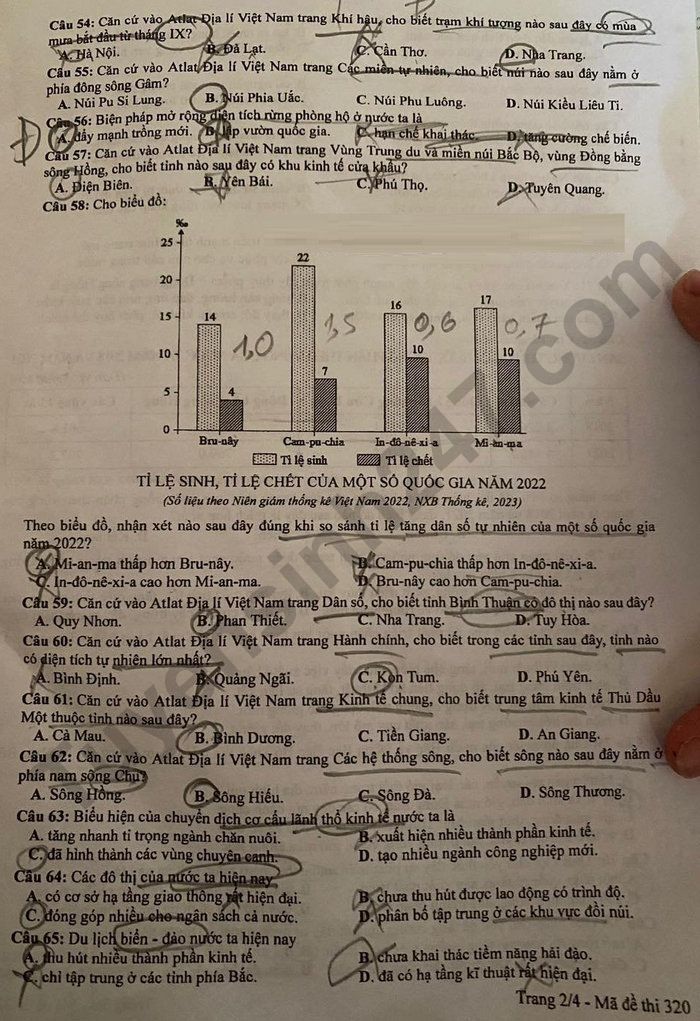 Câu 54: Căn cứ vào Atlat Địa lí Việt Nam trang Khí hậu, cho biết trạm khí tượng nào sau đây có mùa
mưa bắt đầu từ tháng IX?
A. Hà Nội. B. Đà Lạt. C. Cần Thơ. D. Nha Trang.
Câu 55: Căn cứ vào Atlat Địa lí Việt Nam trang Các miền tự nhiên, cho biết núi nào sau đây nằm ở
phía đông sông Gâm?
A. Núi Pu Si Lung. B. Núi Phia Uắc. C. Núi Phu Luông. D. Núi Kiều Liêu Ti.
Câu 56: Biện pháp mở rộng diện tích rừng phòng hộ ở nước ta là
A. đẩy mạnh trồng mới. B. lập vườn quốc gia. C. hạn chế khai thác. D. tăng cường chế biến.
D
Câu 57: Căn cứ vào Atlat Địa lí Việt Nam trang Vùng Trung du và miền núi Bắc Bộ, vùng Đồng bằng
sông Hồng, cho biết tỉnh nào sau đây có khu kinh tế cửa khẩu?
A. Điện Biên. B. Yên Bái. C. Phú Thọ. D. Tuyên Quang.
Câu 58: Cho biểu đồ:
‰
25
20
15
10
5
0
14 4 1,0
22 7 1,5
16 10 0,6
17 10 0,7
Bru-nây Cam-pu-chia In-đô-nê-xi-a Mi-an-ma
Tỉ lệ sinh Tỉ lệ chết
TỈ LỆ SINH, TỈ LỆ CHẾT CỦA MỘT SỐ QUỐC GIA NĂM 2022
(Số liệu theo Niên giám thống kê Việt Nam 2022, NXB Thống kê, 2023)
Theo biểu đồ, nhận xét nào sau đây đúng khi so sánh tỉ lệ tăng dân số tự nhiên của một số quốc gia
năm 2022?
A. Mi-an-ma thấp hơn Bru-nây. B. Cam-pu-chia thấp hơn In-đô-nê-xi-a.
C. In-đô-nê-xi-a cao hơn Mi-an-ma. D. Bru-nây cao hơn Cam-pu-chia.
Câu 59: Căn cứ vào Atlat Địa lí Việt Nam trang Dân số, cho biết tỉnh Bình Thuận có đô thị nào sau đây?
A. Quy Nhơn. B. Phan Thiết. C. Nha Trang. D. Tuy Hòa.
Câu 60: Căn cứ vào Atlat Địa lí Việt Nam trang Hành chính, cho biết trong các tỉnh sau đây, tỉnh nào
có diện tích tự nhiên lớn nhất?
A. Bình Định. B. Quảng Ngãi. C. Kon Tum. D. Phú Yên.
Câu 61: Căn cứ vào Atlat Địa lí Việt Nam trang Kinh tế chung, cho biết trung tâm kinh tế Thủ Dầu
Một thuộc tỉnh nào sau đây?
A. Cà Mau. B. Bình Dương. C. Tiền Giang. D. An Giang.
Câu 62: Căn cứ vào Atlat Địa lí Việt Nam trang Các hệ thống sông, cho biết sông nào sau đây nằm ở
phía nam sông Chu?
A. Sông Hồng. B. Sông Hiếu. C. Sông Đà. D. Sông Thương.
Câu 63: Biểu hiện của chuyển dịch cơ cấu lãnh thổ kinh tế nước ta là
A. tăng nhanh tỉ trọng ngành chăn nuôi. B. xuất hiện nhiều thành phần kinh tế.
C. đã hình thành các vùng chuyên canh. D. tạo nhiều ngành công nghiệp mới.
Câu 64: Các đô thị của nước ta hiện nay
A. có cơ sở hạ tầng giao thông rất hiện đại. B. chưa thu hút được lao động có trình độ.
C. đóng góp nhiều cho ngân sách cả nước. D. phân bố tập trung ở các khu vực đồi núi.
Câu 65: Du lịch biển - đảo nước ta hiện nay
A. thu hút nhiều thành phần kinh tế. B. chưa khai thác tiềm năng hải đảo.
C. chỉ tập trung ở các tỉnh phía Bắc. D. đã có hạ tầng kĩ thuật rất hiện đại.
Trang 2/4 - Mã đề thi 320